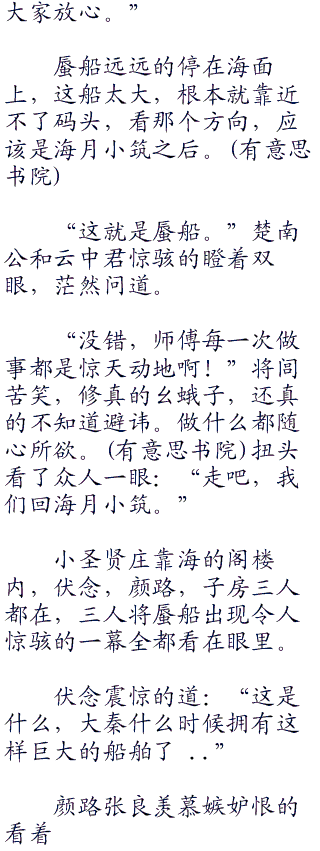 大家放心。”
蜃船远远的停在海面
上，这船太大，根本就靠近
不了码头，看那个方向，应
该是海月小筑之后。(有意思
书院)
“这就是蜃船。”楚南
公和云中君惊骇的瞪着双
眼，茫然问道。
“没错，师傅每一次做
事都是惊天动地啊！”将闾
苦笑，修真的幺蛾子，还真
的不知道避讳。做什么都随
心所欲。(有意思书院)扭头
看了众人一眼：“走吧，我
们回海月小筑。”
小圣贤庄靠海的阁楼
内，伏念，颜路，子房三人
都在，三人将蜃船出现令人
惊骇的一幕全都看在眼里。
伏念震惊的道：“这是
什么，大秦什么时候拥有这
样巨大的船舶了 ..”
颜路张良羡慕嫉妒恨的
看着